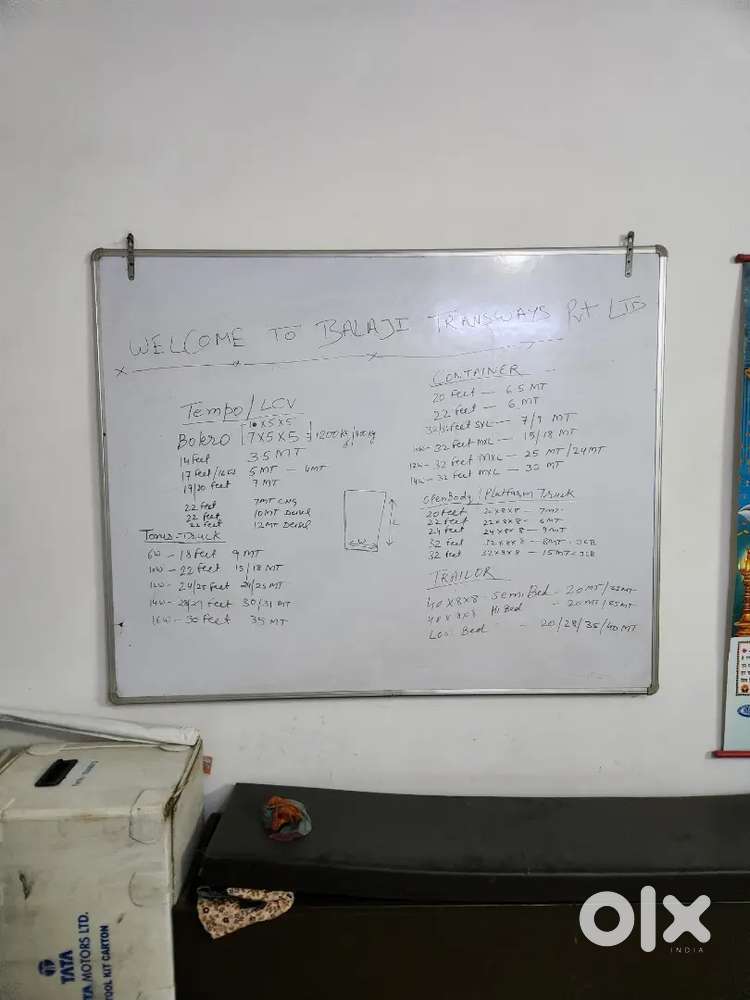 WELCOME TO BALAJI TRANSWAYS Pvt LTD
Tempo/LCV
10x5x5
Bolero 7x5x5
14 feet 3.5 MT
17 feet 5 MT - 6MT
19/20 feet 7 MT
22 feet 7MT CNG
22 feet 10MT Deisel
22 feet 12MT Deisel
Truck
6W - 18 feet 9 MT
10W - 22 feet 15/18 MT
12W - 24/25 feet /25 MT
14W - 28/29 feet 30/31 MT
16W - 30 feet 35 MT
CONTAINER
20 feet - 6.5 MT
22 feet - 6 MT
feet SXL - 7/9 MT
10W - 32 feet MXL - 15/18 MT
12W - 32 feet MXL - 25 MT/24MT
14W - 32 feet MXL - 32 MT
OpenBody/Platform Truck
20 feet 20x8x8 - 7MT
22 feet 22x8x8 - 6MT
24 feet 24x8x8 - 9MT
32 feet 32x8x8 - 8MT - JCB
32 feet 32x8x8 - 15MT - JCB
TRAILER
40x8x8 Semi Bed - 20MT/
40x8x8 Hi Bed - 20MT/
Low Bed - 20/28/35/40 MT
TATA
TATA MOTORS LTD.
TOOL KIT CARTON
olx
INDIA